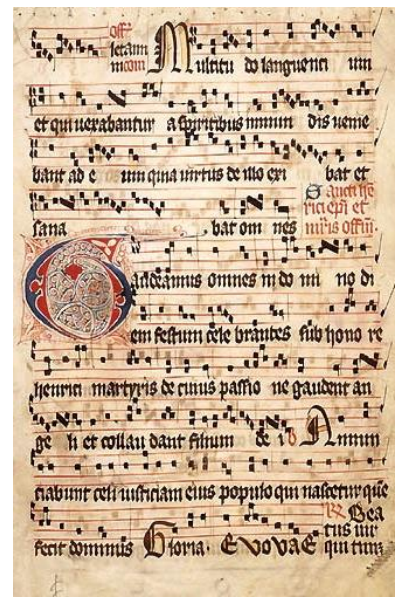 Multitu do languenti um
et qui uexabantur a spiritibus inmun dis uenie
bant ad e um quia uirtus de illo exi bat et
Sancti He
rici epi et
sana bat om nes mris offm.
Gaudeamus omnes in do mi no di
em festum cele brantes sub hono re
henrici martyris de cuius passio ne gaudent an
ge li et collau dant filium de i Annun
ciabunt celi iusticiam eius populo qui nascetur que
Bea
tus uir
fecit dominus Gloria. EVOVAE qui tim